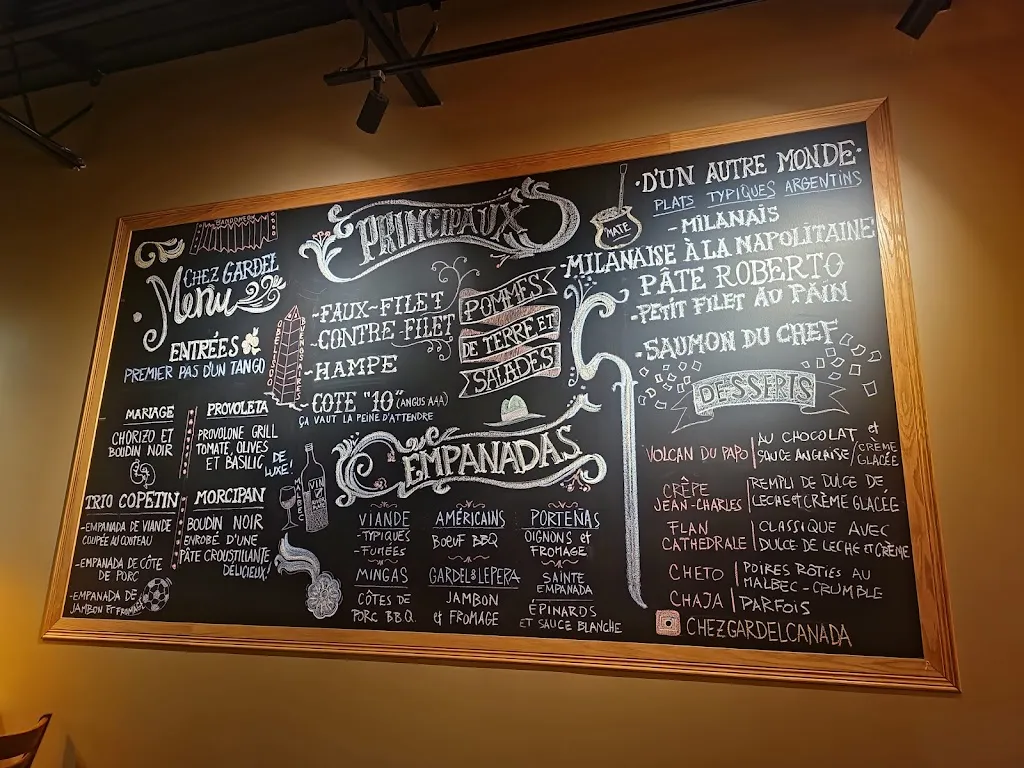 BANDONEON
CHEZ GARDEL
Menu
ENTRÉES
PREMIER PAS D'UN TANGO
MARIAGE
CHORIZO ET
BOUDIN NOIR
PROVOLETA
PROVOLONE GRILL
TOMATE, OLIVES
ET BASILIC, DE
LUXE!
TRIO COPETIN
-EMPANADA DE VIANDE
COUPÉE AU COUTEAU
-EMPANADA DE CÔTE
DE PORC
-EMPANADA DE
JAMBON ET FROMAGE
MORCIPAN
BOUDIN NOIR
ENROBÉ D'UNE
PÂTE CROUSTILLANTE
DÉLICIEUX!
OBELISCO
BUENOS AIRES
PRINCIPAUX
-FAUX-FILET
-CONTRE-FILET
-HAMPE
-COTE "10" (ANGUS AAA)
ÇA VAUT LA PEINE D'ATTENDRE
POMMES
DE TERRE ET
SALADES
MALBEC
VIN
EMPANADAS
VIANDE
-TYPIQUES
-FUMÉES
MINGAS
CÔTES DE
PORC BBQ.
AMÉRICAINS
BOEUF BBQ
GARDEL & LEPERA
JAMBON
et FROMAGE
PORTEÑAS
OIGNONS et
FROMAGE
SAINTE
EMPANADA
ÉPINARDS
ET SAUCE BLANCHE
MATE
·D'UN AUTRE MONDE·
PLATS TYPIQUES ARGENTINS
-MILANAIS
-MILANAISE À LA NAPOLITAINE
PÂTE ROBERTO
-PETIT FILET AU PAIN
-SAUMON DU CHEF
DESSERTS
VOLCAN DU PAPO AU CHOCOLAT et
SAUCE ANGLAISE/CRÈME
GLACÉE
CRÊPE
JEAN-CHARLES
REMPLI DE DULCE DE
LECHE et CRÈME GLACÉE
FLAN
CATHEDRALE
CLASSIQUE AVEC
DULCE DE LECHE ET CRÈME
CHETO POIRES RÔTIES AU
MALBEC-CRUMBLE
CHAJA PARFOIS
CHEZGARDELCANADA